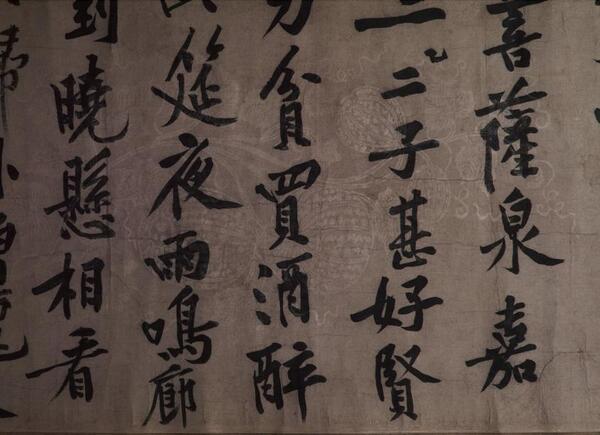 菩薩泉嘉
三二子甚好賢
力貧買酒醉
筵夜雨鳴廊
到曉懸相看
歸臥僧氈